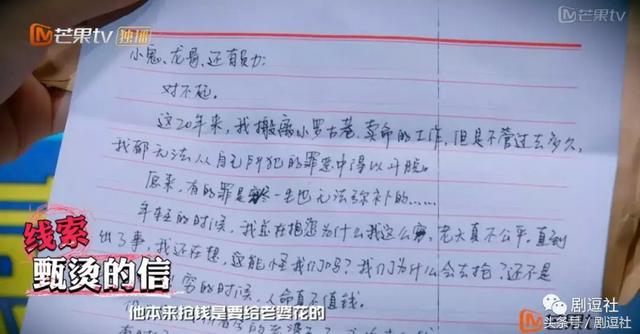 芒果tv 独播
芒果tv
小鬼、龙哥、还有
对不起。
这20年来，我搬离小罗古巷，卖命的工作，但是不管过去多久，
我都无法从自己所犯的罪恶中得以解脱。
原来，有的罪是一生也无法弥补的……
年轻的时候，我总在抱怨为什么我这么穷，老天真不公平。直到
出了事，我还在想，这能怪我们吗？我们为什么会去抢？还不是
穷的时候，人命真不值钱。
线索
甄烫的信
他本来抢钱是要给老婆花的
剧逗社
头条号/剧逗社